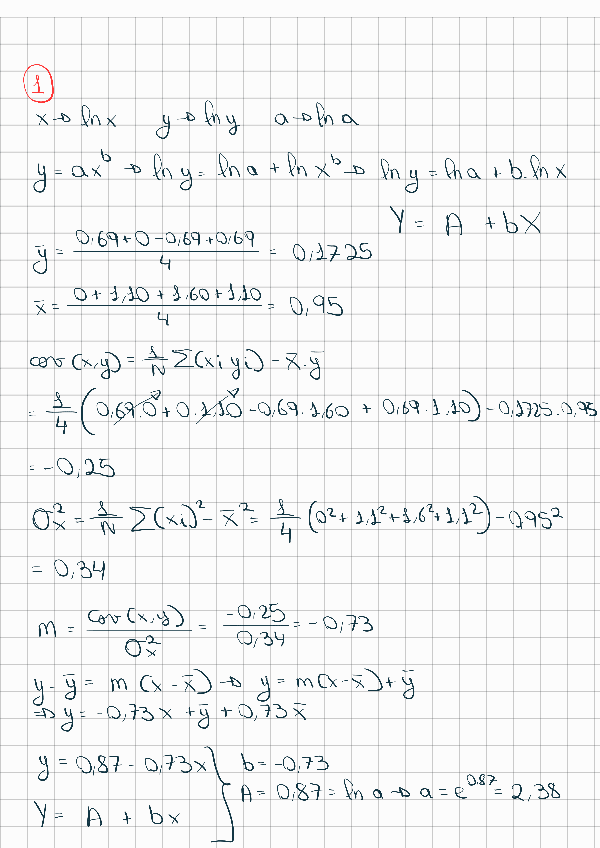 1
x → ln x   y → ln y   a → ln a
y = ax^b → ln y = ln a + ln x^b → ln y = ln a + b. ln x
Y = A + bX
ȳ = (0,69 + 0 - 0,69 + 0,69)/4 = 0,1725
x̄ = (0 + 1,10 + 1,60 + 1,10)/4 = 0,95
cov (x,y) = 1/N Σ(xi yi) - x̄.ȳ
= 1/4 (0,69.0 + 0.1,10 - 0,69.1,60 + 0,69.1,10) - 0,1725.0,95
= -0,25
σx² = 1/N Σ(xi)² - x̄² = 1/4 (0² + 1,1² + 1,6² + 1,1²) - 0,95²
= 0,34
m = cov (x,y)/σx² = -0,25/0,34 = -0,73
y - ȳ = m (x - x̄) → y = m(x - x̄) + ȳ
⇒ y = -0,73x + ȳ + 0,73x̄
y = 0,87 - 0,73x   b = -0,73
A = 0,87 = ln a → a = e^0.87 = 2,38
Y = A + bx